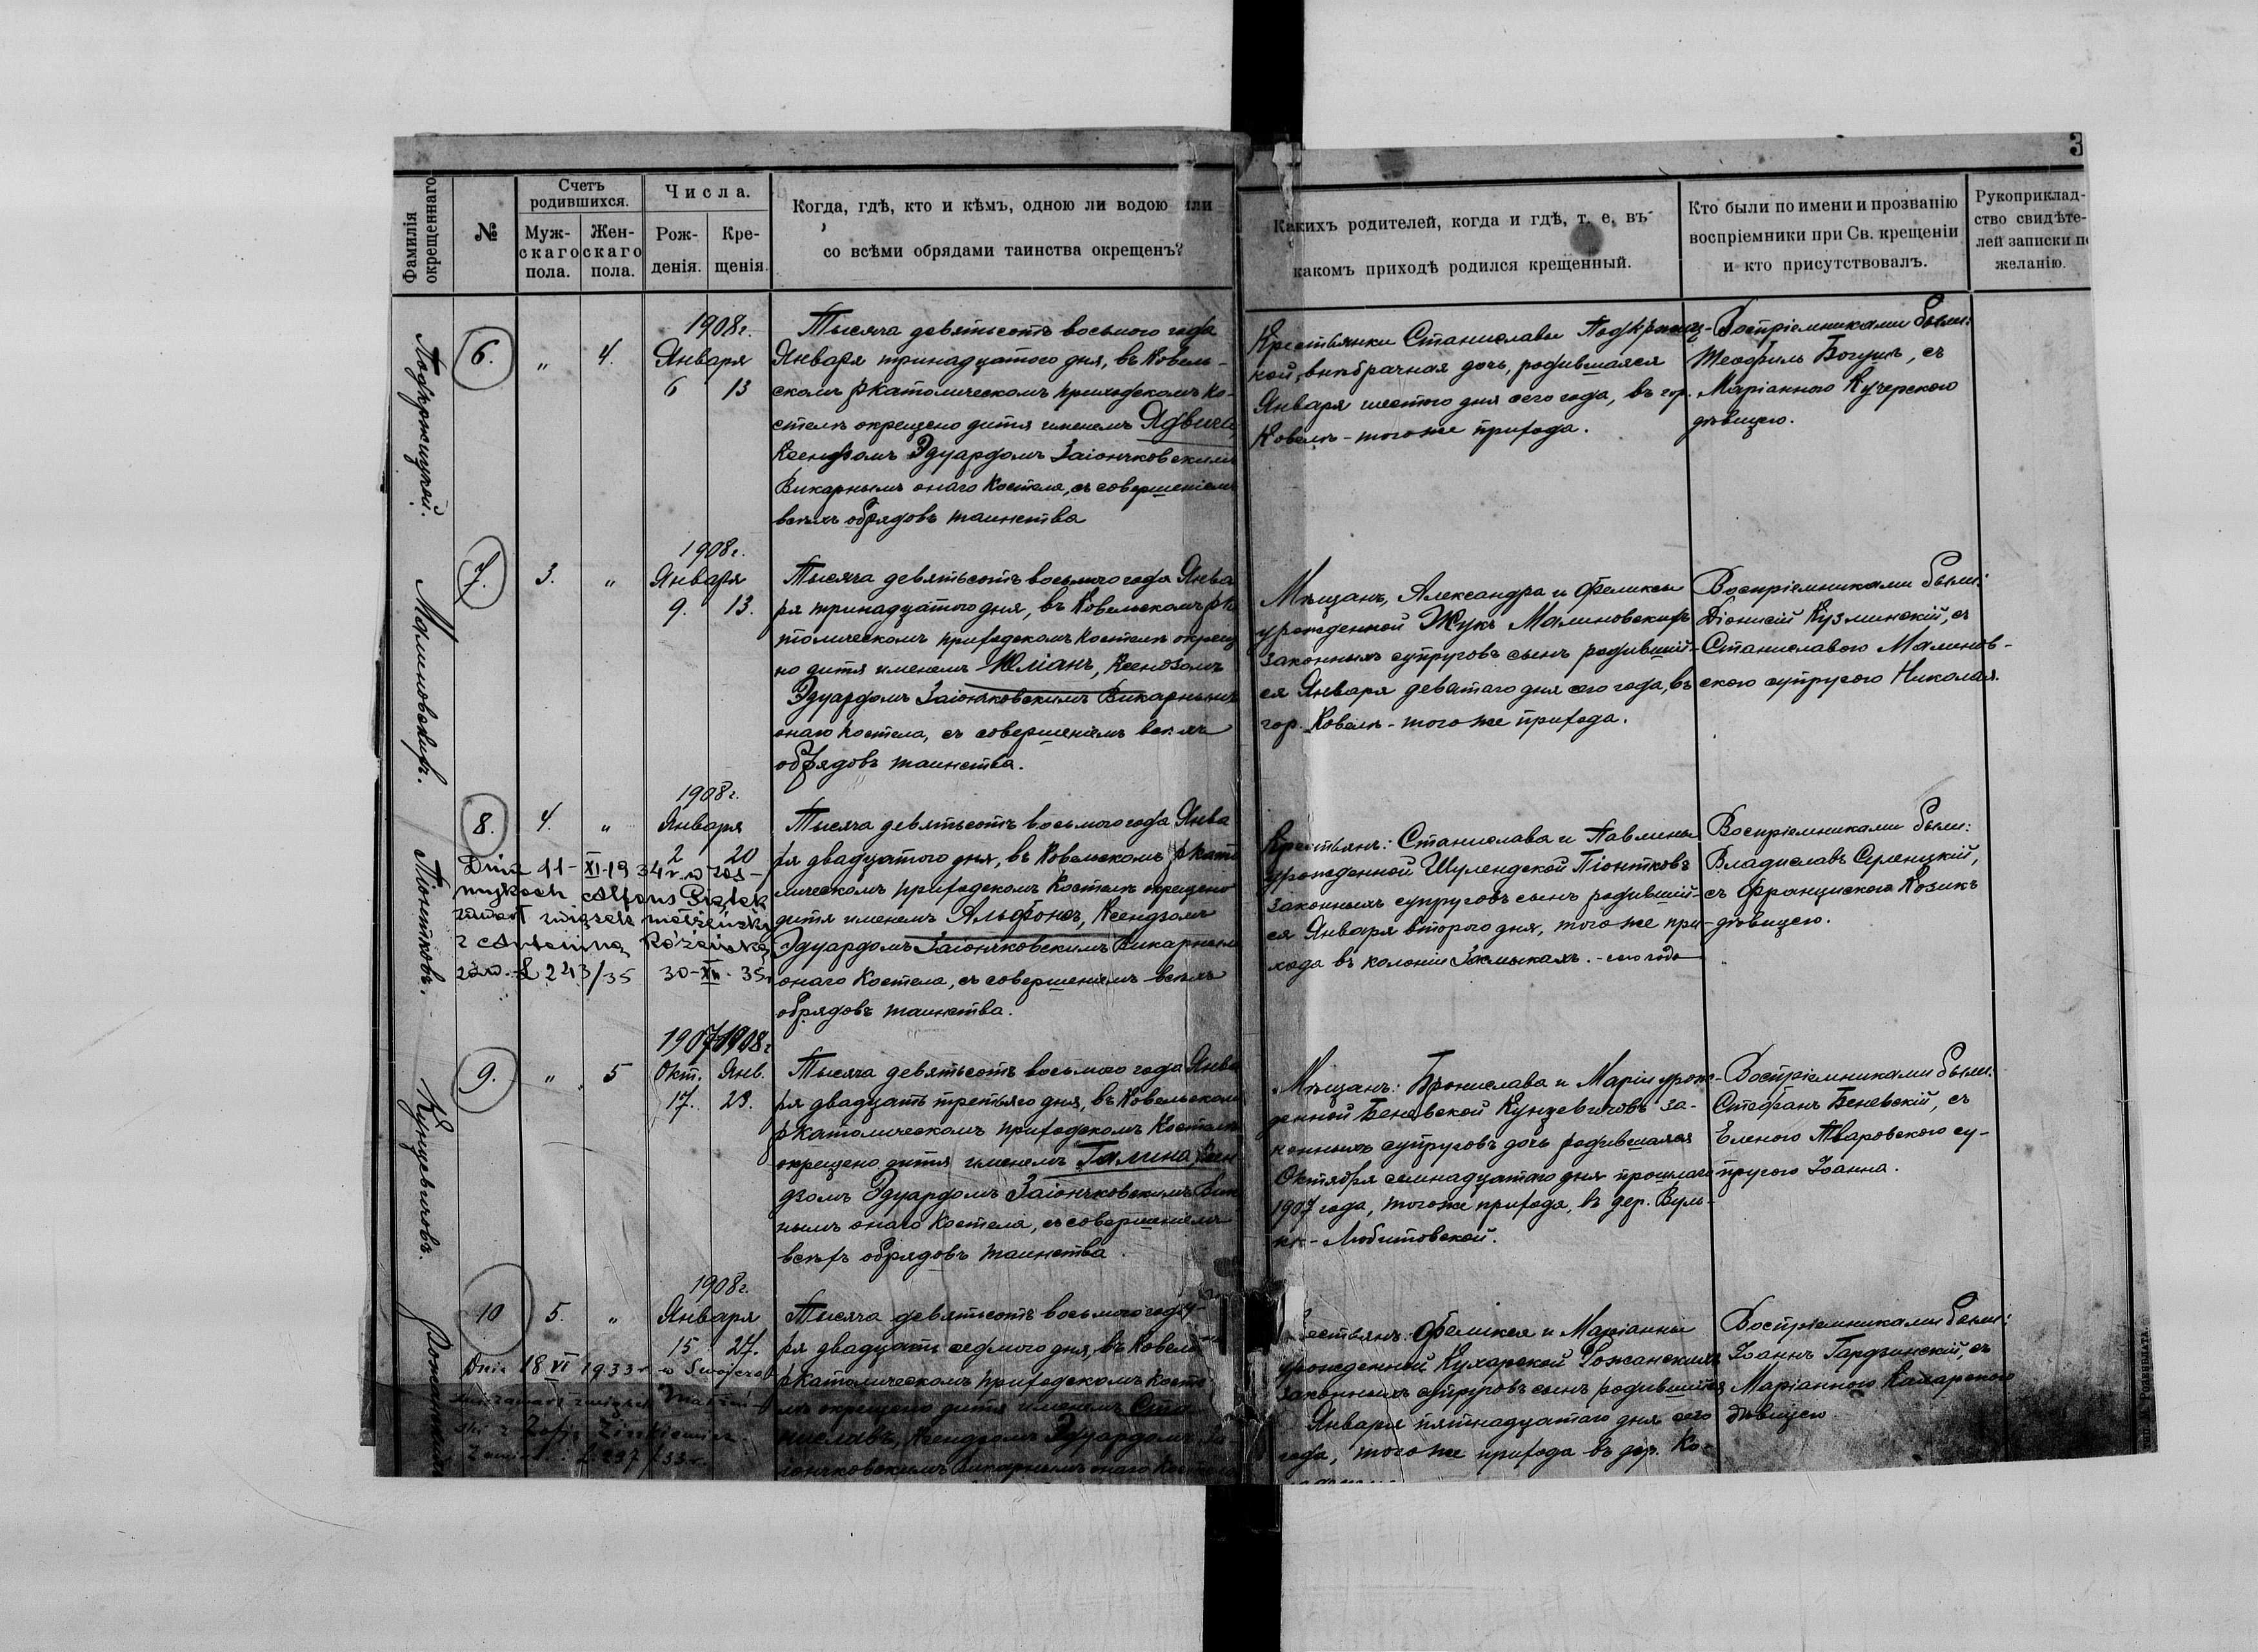 3
Фамилія окрещеннаго
№
Счетъ родившихся.
Муж-
скаго
пола.
Жен-
скаго
пола.
Числа.
Рож-
денія.
Кре-
щенія.
Когда, гдѣ, кто и кѣмъ, одною ли водою или
со всѣми обрядами таинства окрещенъ?
Какихъ родителей, когда и гдѣ, т. е, въ
какомъ приходѣ родился крещенный.
Кто были по имени и прозванію
воспріемники при Св. крещеніи
и кто присутствовалъ.
Рукоприклад-
ство свидѣте-
лей записки по
желанію.
6.
„
4.
1908г.
Января
6 13
Тысяча девятьсотъ восьмого года
Января тринадцатого дня, въ Ковель-
скомъ р католическомъ приходскомъ ко-
стелѣ окрещено дитя именемъ Ядвига,
Ксендзомъ Эдуардомъ Заіончковскимъ
Викарнымъ онаго Костела, съ совершеніемъ
всѣхъ обрядовъ таинства
Крестьянки Станиславы
кой, внѣбрачная дочь, родившаяся
Января шестого дня сего года, въ гор.
Ковелѣ - того же прихода.
Воспріемниками были:
Теофиль Богушъ, съ
Маріанною Кучерскою
дѣвицею.
7.
Малиновскихъ.
3.
„
1908г.
Января
9. 13.
Тысяча девятьсотъ восьмого года Янва
ря тринадцатого дня, въ Ковельскомъ р ка
толическомъ приходскомъ Костелѣ окреще
но дитя именемъ Юліанъ, Ксендзомъ
Эдуардомъ Заіончковскимъ Викарнымъ
онаго Костела, съ совершеніемъ всѣхъ
обрядовъ таинства.
Мѣщанъ, Александра и Феликсы
урожденной Жукъ Малиновскихъ
законныхъ супруговъ сынъ родившій-
ся Января девятаго дня сего года, въ
гор. Ковелѣ - того же прихода.
Воспріемниками были:
Діонисій Кузминскій, съ
Станиславою Малинов-
скою супругою Николая.
8.
Піонтковъ.
4.
„
1908г.
Января
2 20
Dnia 11-XI-1934 r. w Zas-
mykach Alfons Piątek
zawarł związek małżeński
z Antoniną Różańską
zaw. L 243/35 30-XII-35
Тысяча девятьсотъ восьмого года Янва
ря двадцатого дня, въ Ковельскомъ р като
лическомъ приходскомъ Костелѣ окрещено
дитя именемъ Альфонсъ, Ксендзомъ
Эдуардомъ Заіончковскимъ Викарнымъ
онаго Костела, съ совершеніемъ всѣхъ
обрядовъ таинства.
Крестьянъ: Станислава и Павлины
урожденной Шулендской Піонтковъ
законныхъ супруговъ сынъ родившій-
ся Января второго дня, того же при-
хода въ колоніи Засмыкахъ. - сего года
Воспріемниками были:
Владиславъ
съ Францискою Козикъ
дѣвицею.
9.
Кунцевичовъ.
„
5
1907 1908г
Окт. Янв.
17. 23.
Тысяча девятьсотъ восьмого года Янва
ря двадцать третьяго дня, въ Ковельском
р католическомъ приходскомъ Костелѣ
окрещено дитя именемъ Галина, Ксен
дзомъ Эдуардомъ Заіончковскимъ Вик
нымъ онаго Костела, съ совершеніемъ
всѣхъ обрядовъ таинства.
Мѣщанъ: Бронислава и Маріи урож-
денной Беневской Кунцевичовъ за-
конныхъ супруговъ дочь родившаяся
Октября семнадцатаго дня прошлаго
1907 года, того же прихода, въ дер. Вуль-
кѣ - Любитовской.
Воспріемниками были:
Стефанъ Беневскій, съ
Еленою Тваровскою су-
пругою Іоанна.
10
5.
„
1908г.
Января
15 27.
Dnia 18 VI 1933 r w
z Zofją
L 237/33 r.
Тысяча девятьсотъ восьмого году
ря двадцать седмого дня, въ Ковель
р католическомъ приходскомъ Косте
лѣ окрещено дитя именемъ Ста
ниславъ, Ксендзомъ Эдуардомъ За
іончковскимъ Викарнымъ онаго
естьянъ: Феликса и Маріанны
урожденной Кухарской Рожанскихъ
законныхъ супруговъ сынъ родившійся
Января пятнадцатаго дня сего
года, того же прихода въ дер. Ко-
Воспріемниками были:
Іоаннъ Гардзинскій, съ
Маріанною
дѣвицею.